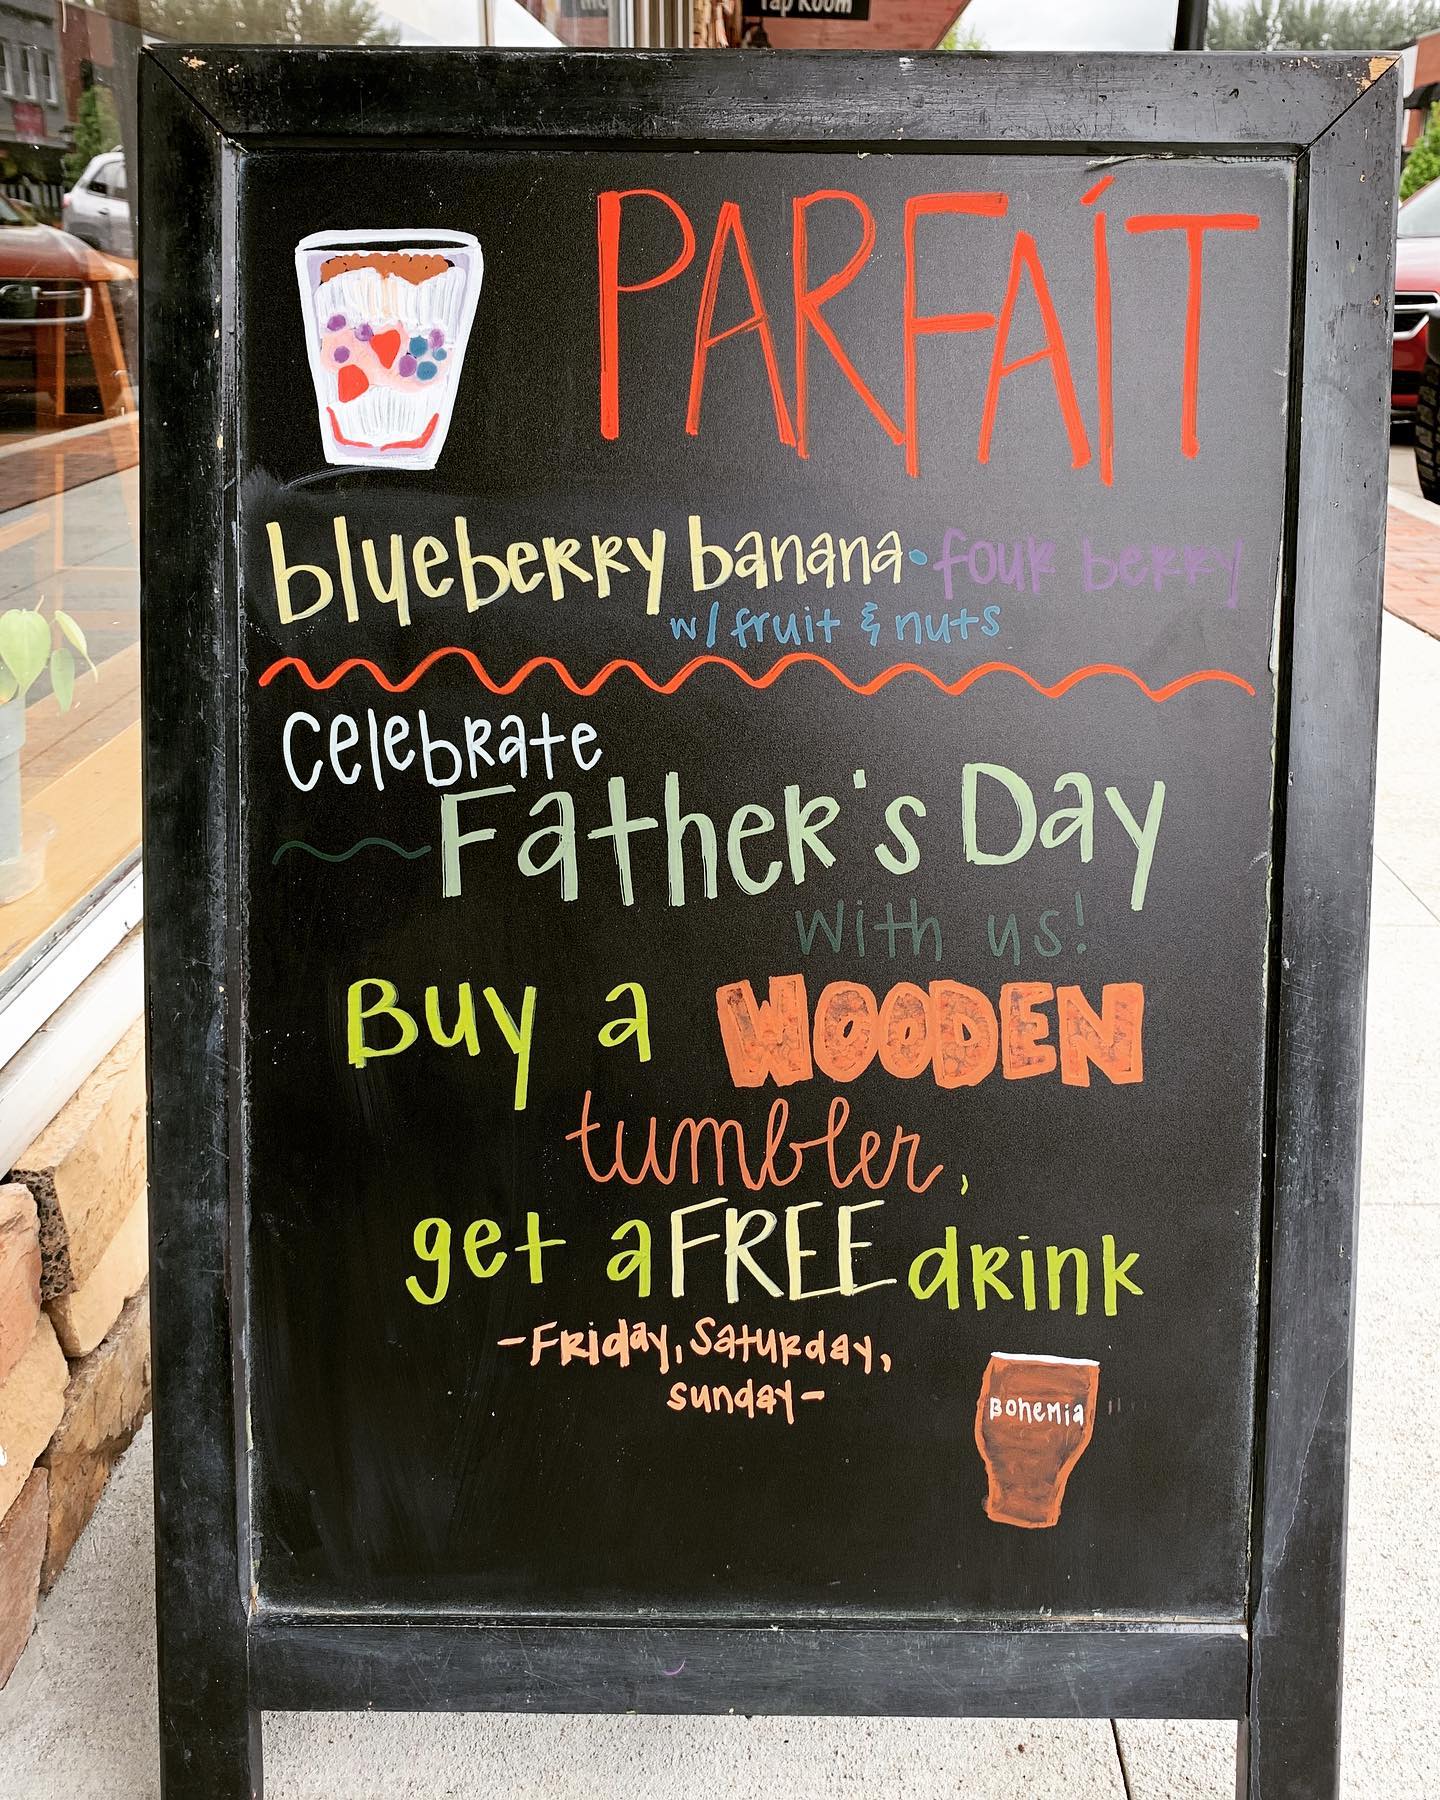 Tap Room
PARFAÍT
blueberry banana • four berry
w/ fruit & nuts
celebrate
Father's Day
with us!
Buy a WOODEN
tumbler,
get a FREE drink
-Friday, Saturday,
sunday-
Bohemia